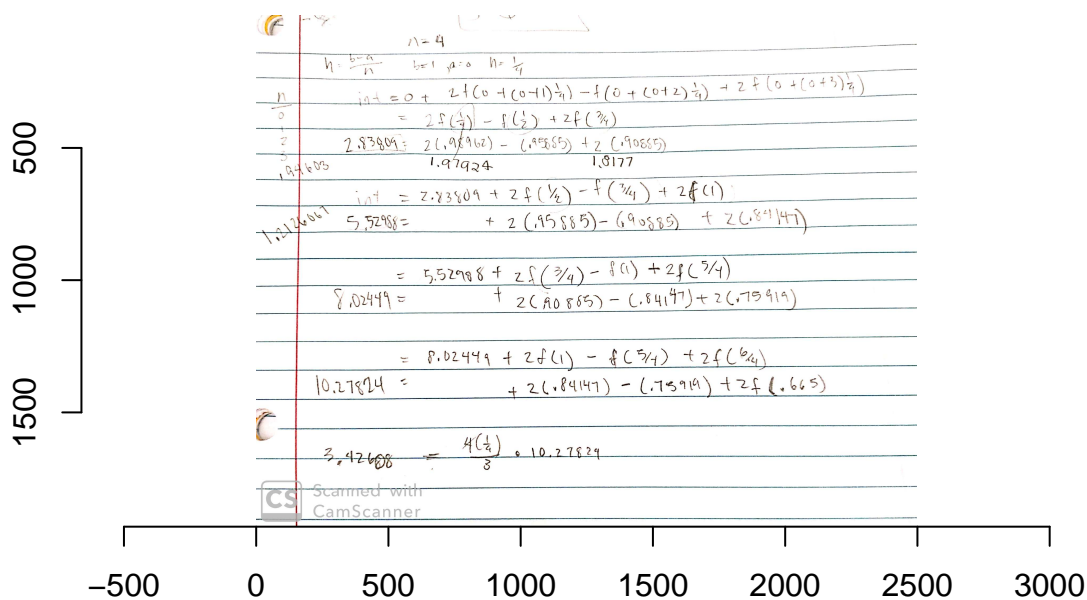 n=4
h = b-a/n b=1 a=0 h=1/4
n int = 0 + 2f(0+(0+1)1/4) - f(0+(0+2)1/4) + 2f(0+(0+3)1/4)
0 = 2f(1/4) - f(1/2) + 2f(3/4)
1
2 2.83809= 2(.98962) - (.95885) + 2(.90885)
3 1.97924 1.8177
.94603
int = 2.83809 + 2f(1/2) - f(3/4) + 2f(1)
1.2126067 5.52988= + 2(.95885) - (.90885) + 2(.84147)
= 5.52988 + 2f(3/4) - f(1) + 2f(5/4)
8.02449 = + 2(.90885) - (.84147) + 2(.75919)
= 8.02449 + 2f(1) - f(5/4) + 2f(6/4)
10.27824 = + 2(.84147) - (.75919) + 2f(.665)
3.42608 = 4(1/4)/3 • 10.27824
CS Scanned with
CamScanner
500
1000
1500
−500 0 500 1000 1500 2000 2500 3000